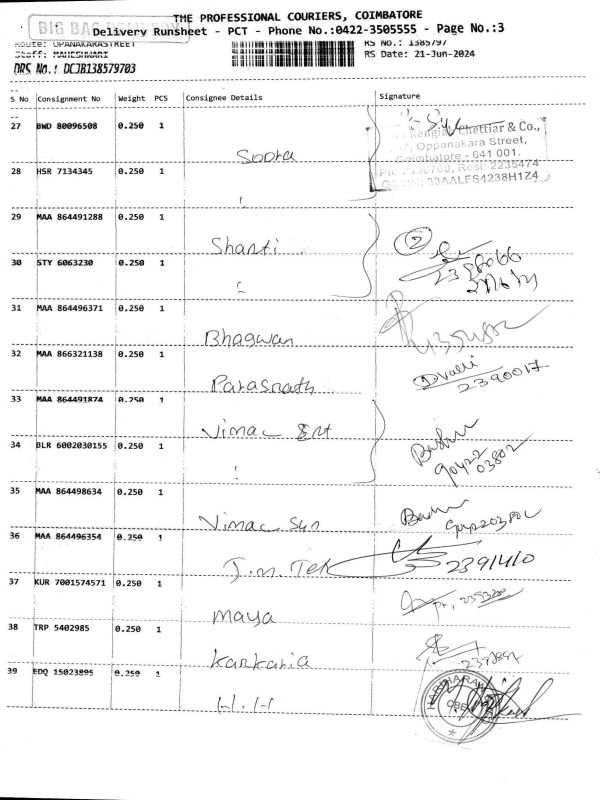 THE PROFESSIONAL COURIERS, COIMBATORE
BIG BAG DELIVERY
Delivery Runsheet - PCT - Phone No.:0422-3505555 - Page No.:3
Route: OPANAKARASTREET
RS No.: 1385797
Staff: MAHESHWARI
RS Date: 21-Jun-2024
DRS No.: DCJB138579703
S No Consignment No Weight PCS Consignee Details Signature
27 BWD 80096508 0.250 1
Chettiar & Co.,
Oppanakara Street,
Coimbatore - 641 001.
Resi: 2235474
33AALFS4238H1Z4
28 HSR 7134345 0.250 1
29 MAA 864491288 0.250 1
Shanti
2
30 STY 6063230 0.250 1
31 MAA 864496371 0.250 1
Bhagwan
32 MAA 866321138 0.250 1
Parasnath
Dvalli
2390017
33 MAA 864491874 0.250 1
Vimac Ent
34 BLR 6002030155 0.250 1
90422
03802
35 MAA 864498634 0.250 1
Vimac Sun
36 MAA 864496354 0.250 1
J.M. Tek
2391410
37 KUR 7001574571 0.250 1
Maya
38 TRP 5402985 0.250 1
Karkaria
39 EDQ 15023895 0.250 1
H.H